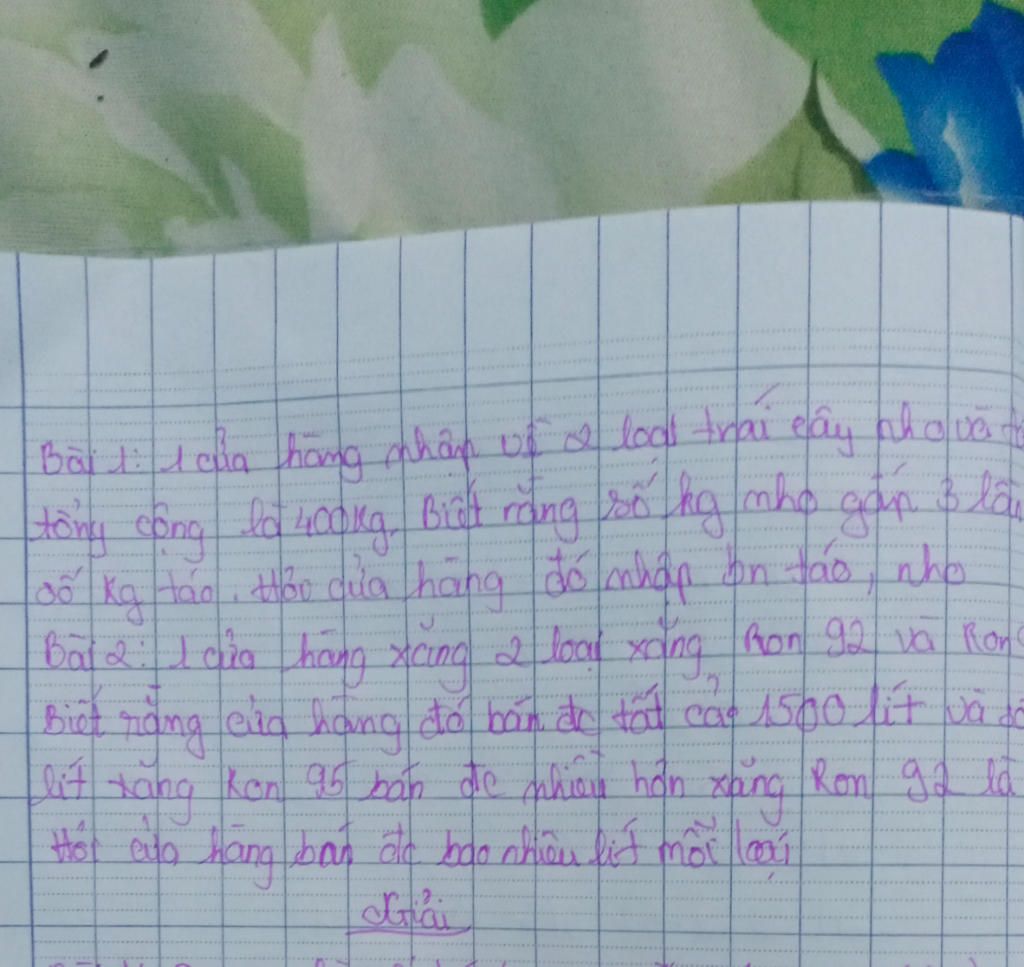 Bài 1: 1 cửa hàng nhập về 2 loại trái cây nho và
tổng cộng là 400kg. Biết rằng số kg nho gấp 3 lần
số kg táo. Hỏi cửa hàng đó nhập bn táo, nho
Bài 2: 1 cửa hàng xăng 2 loại xăng Ron 92 và Ron
Biết rằng cửa hàng đó bán đc tất cả 1500 lít và số
lít xăng Ron 95 bán đc nhiều hơn xăng Ron 92 là
Hỏi cửa hàng bán đc bao nhiêu lít mỗi loại
Giải